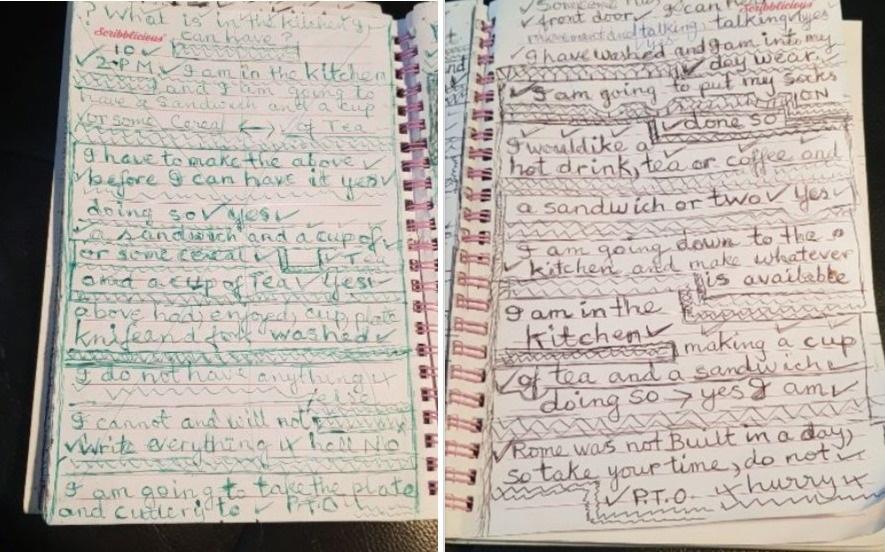 ? What is in the kitchen I
Scribblicious
can have ?
10 ✓
✓ 2.P.M. ✓ I am in the kitchen
and I am going to
have a Sandwich and a cup
or some Cereal ↔ of Tea
I have to make the above ✓
✓ before I can have it yes ✓
doing so ✓ yes ✓
a sandwich and a cup of
or some cereal ✓ ✓ Tea
and a cup of Tea ✓ Yes ✓
above had, enjoyed, cup, plate
knife and fork washed ✓
I do not have anything x
else
I cannot and will not
✓ Write everything x hell No
I am going to take the plate
and cutlery to ✓ P.T.O
✓ Someone
Scribblicious
✓ front door, I can
movement and talking, talking yes
I have washed and I am into my
✓ day wear.
✓ I am going to put my Socks
ON
✓ done so
I would like a
hot drink, tea or coffee and
a sandwich or two ✓ Yes ✓
I am going down to the
✓ kitchen and make whatever
is available
I am in the
kitchen ✓
making a cup
✓ of tea and a sandwich ✓
doing so → yes I am ✓
✓ Rome was not Built in a day,
so take your time, do not ✓
✓ P.T.O. x hurry x